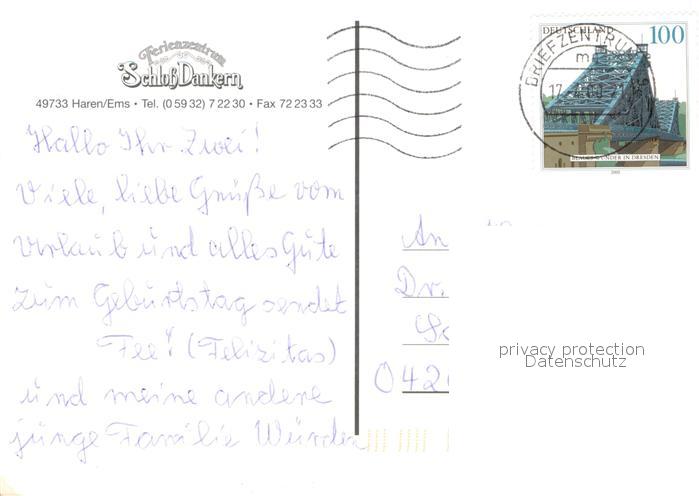 Ferienzentrum
Schloß Dankern
49733 Haren/Ems • Tel. (0 59 32) 7 22 30 • Fax 72 23 33
DEUTSCHLAND 100
BRIEFZENTRUM
BLAUES WUNDER IN DRESDEN
2000
Hallo Ihr Zwei!
Viele, liebe Grüße vom
Urlaub und alles Gute
zum Geburtstag sendet
Fee! (Felizitas)
und meine andere
junge Familie Würden
An
Dr.
042
privacy protection
Datenschutz